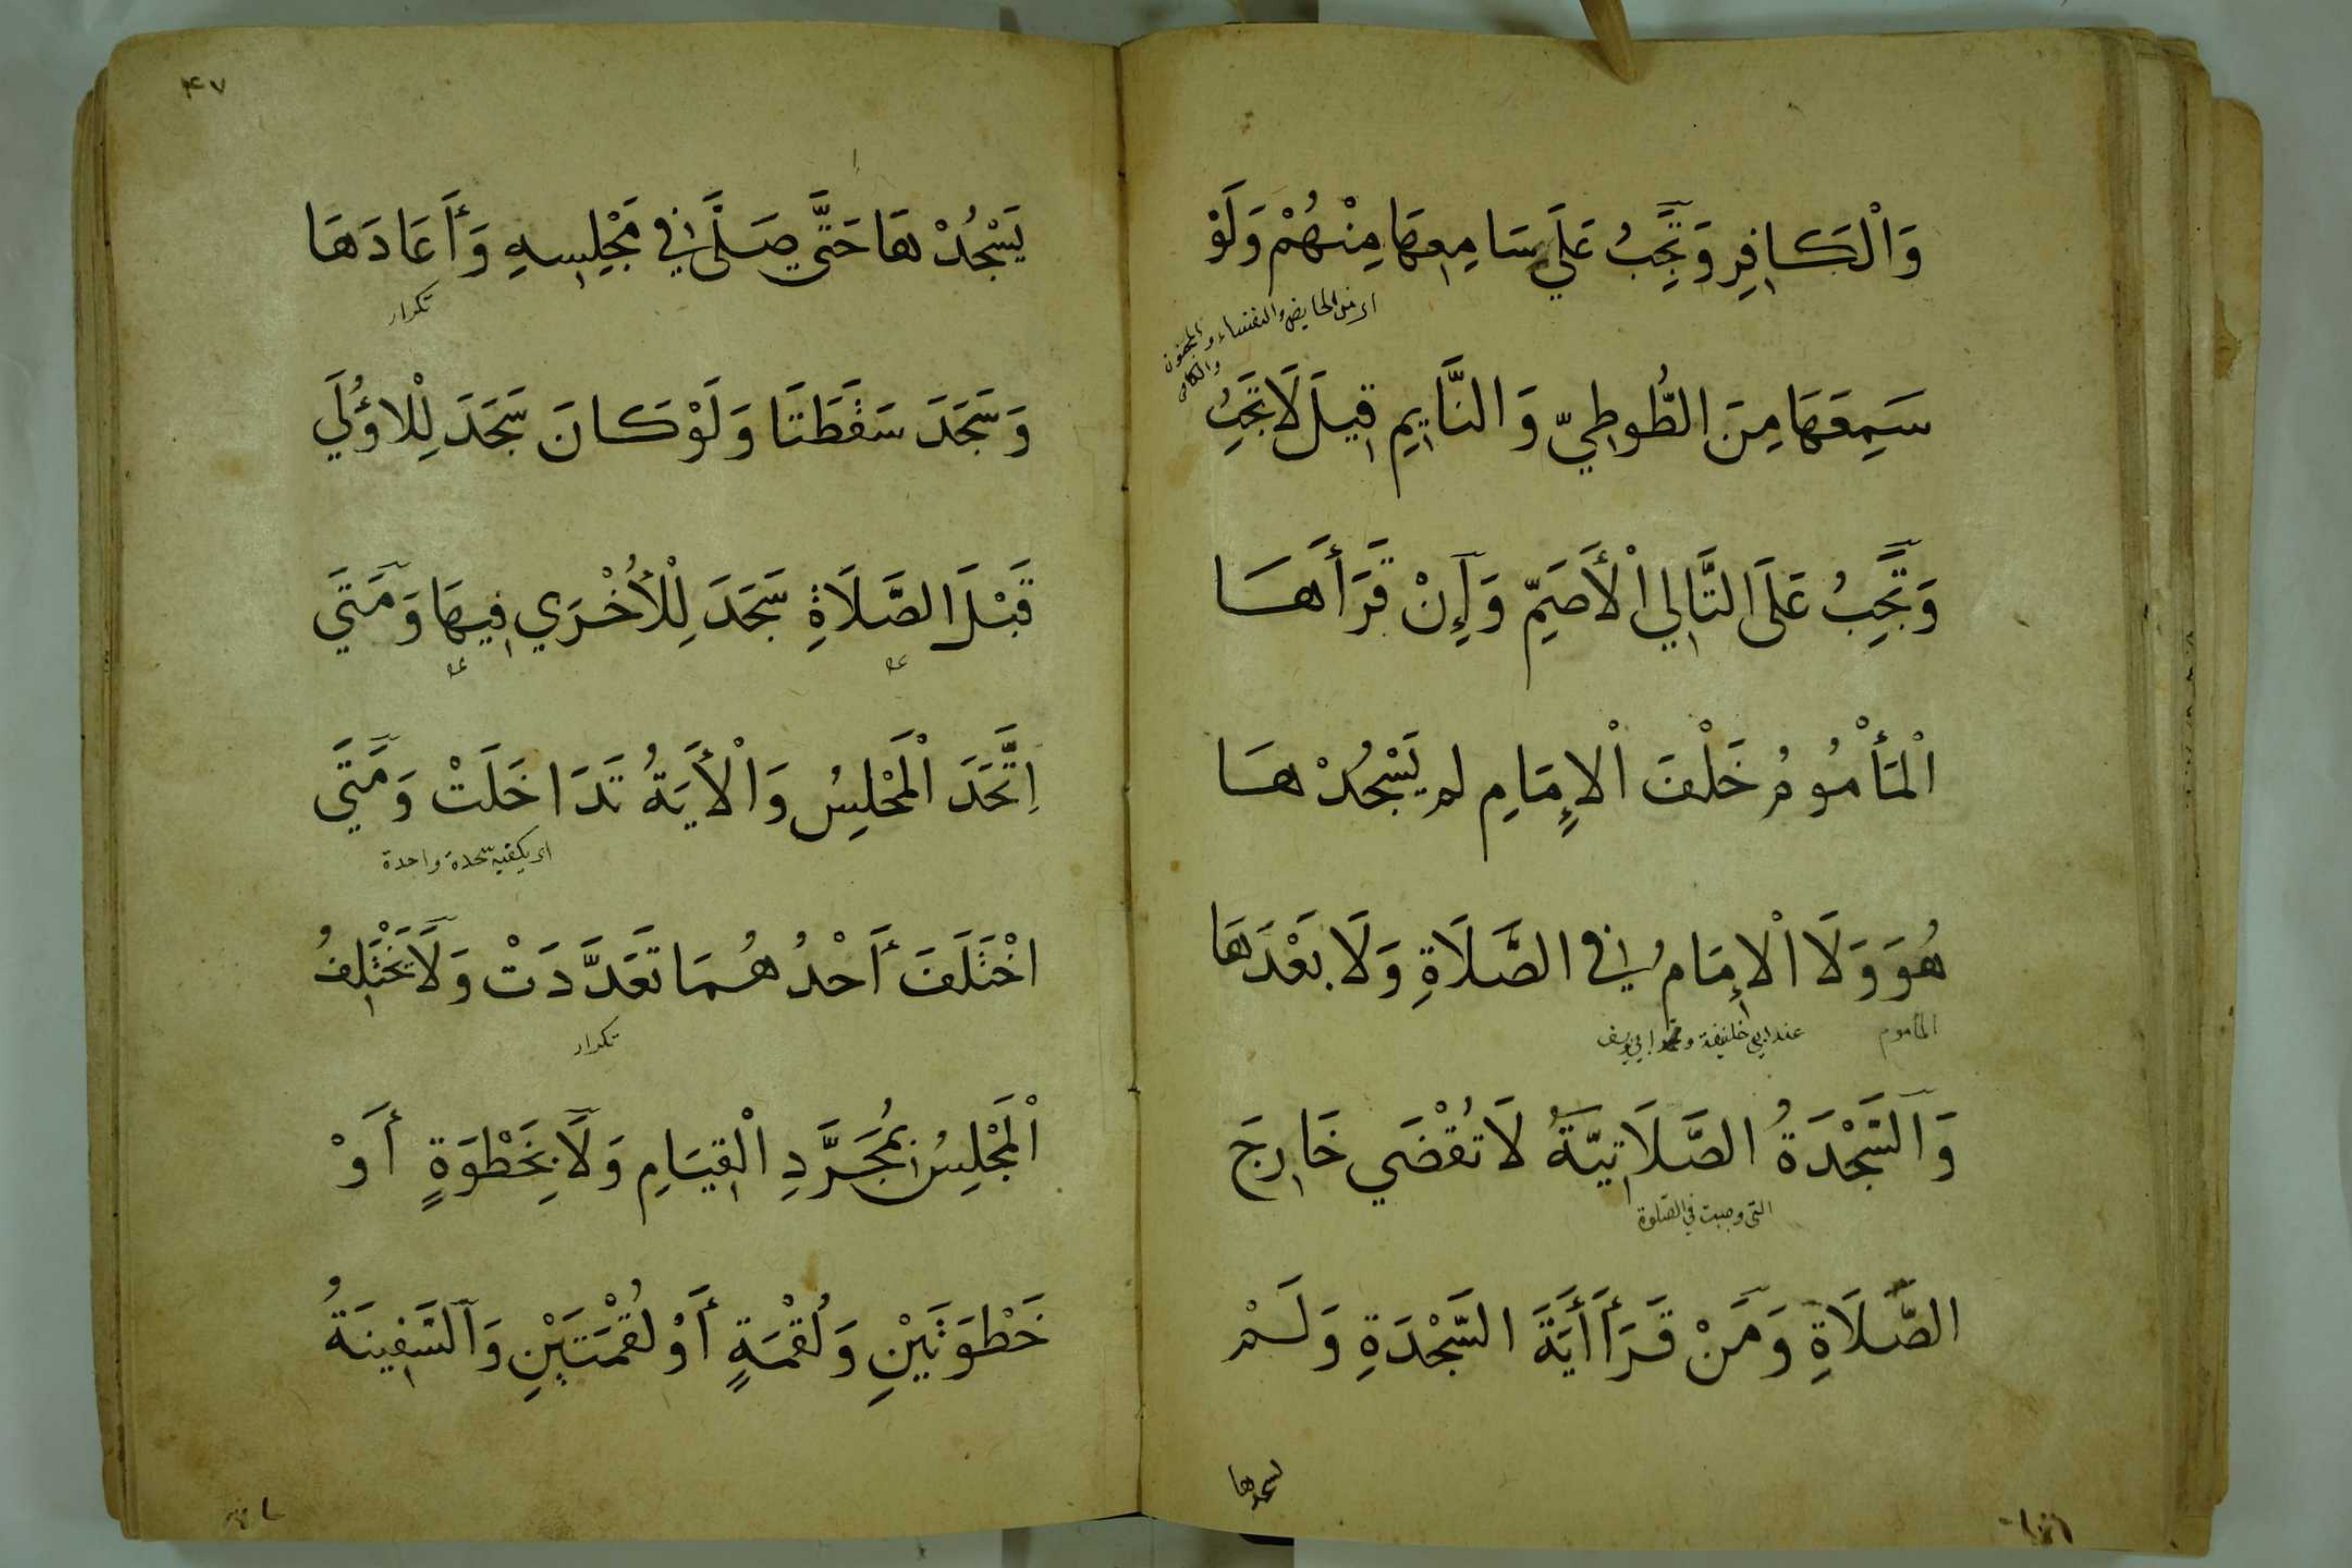 وَالْكَافِرِ وَتَجِبُ عَلَي سَامِعِهَا مِنْهُمْ وَلَوْ
اى من الحايض والنفساء والمجنون
والكافر
سَمِعَهَا مِنَ الطُّوطِيِّ وَالنَّايِمِ قِيلَ لَا تَجِبُ
وَتَجِبُ عَلَى التَّالِي الْأَصَمِّ وَإِنْ قَرَأَهَا
الْمَأْمُومُ خَلْفَ الْإِمَامِ لم يَسْجُدْهَا
هُوَ وَلَا الْإِمَامُ فِي الصَّلَاةِ وَلَا بَعْدَهَا
المأموم
وَالسَّجْدَةُ الصَّلَاتِيَّةُ لَا تُقْضَي خَارِجَ
التى وجبت فى الصلوة
الصَّلَاةِ وَمَنْ قَرَأَ أَيَةَ السَّجْدَةِ وَلَمْ
يسجدها
۴۷
يَسْجُدْهَا حَتَّى صَلَّى فِي مَجْلِسِهِ وَأَعَادَهَا
تكرار
وَسَجَدَ سَقَطَتَا وَلَوْ كَانَ سَجَدَ لِلْأُولَي
قَبْلَ الصَّلَاةِ سَجَدَ لِلْأُخْرَي فِيهَا وَمَتَي
اِتَّحَدَ الْمَجْلِسُ وَالْأَيَةُ تَدَاخَلَتْ وَمَتَي
اى يكفيه سجدة واحدة
اخْتَلَفَ أَحْدُهُمَا تَعَدَّدَتْ وَلَا يَخْتَلِفُ
تكرار
الْمَجْلِسُ بِمُجَرَّدِ الْقِيَامِ وَلَا بِخَطْوَةٍ أَوْ
خَطْوَتَيْنِ وَلُقْمَةٍ أَوْ لُقْمَتَيْنِ وَالسَّفِينَةُ